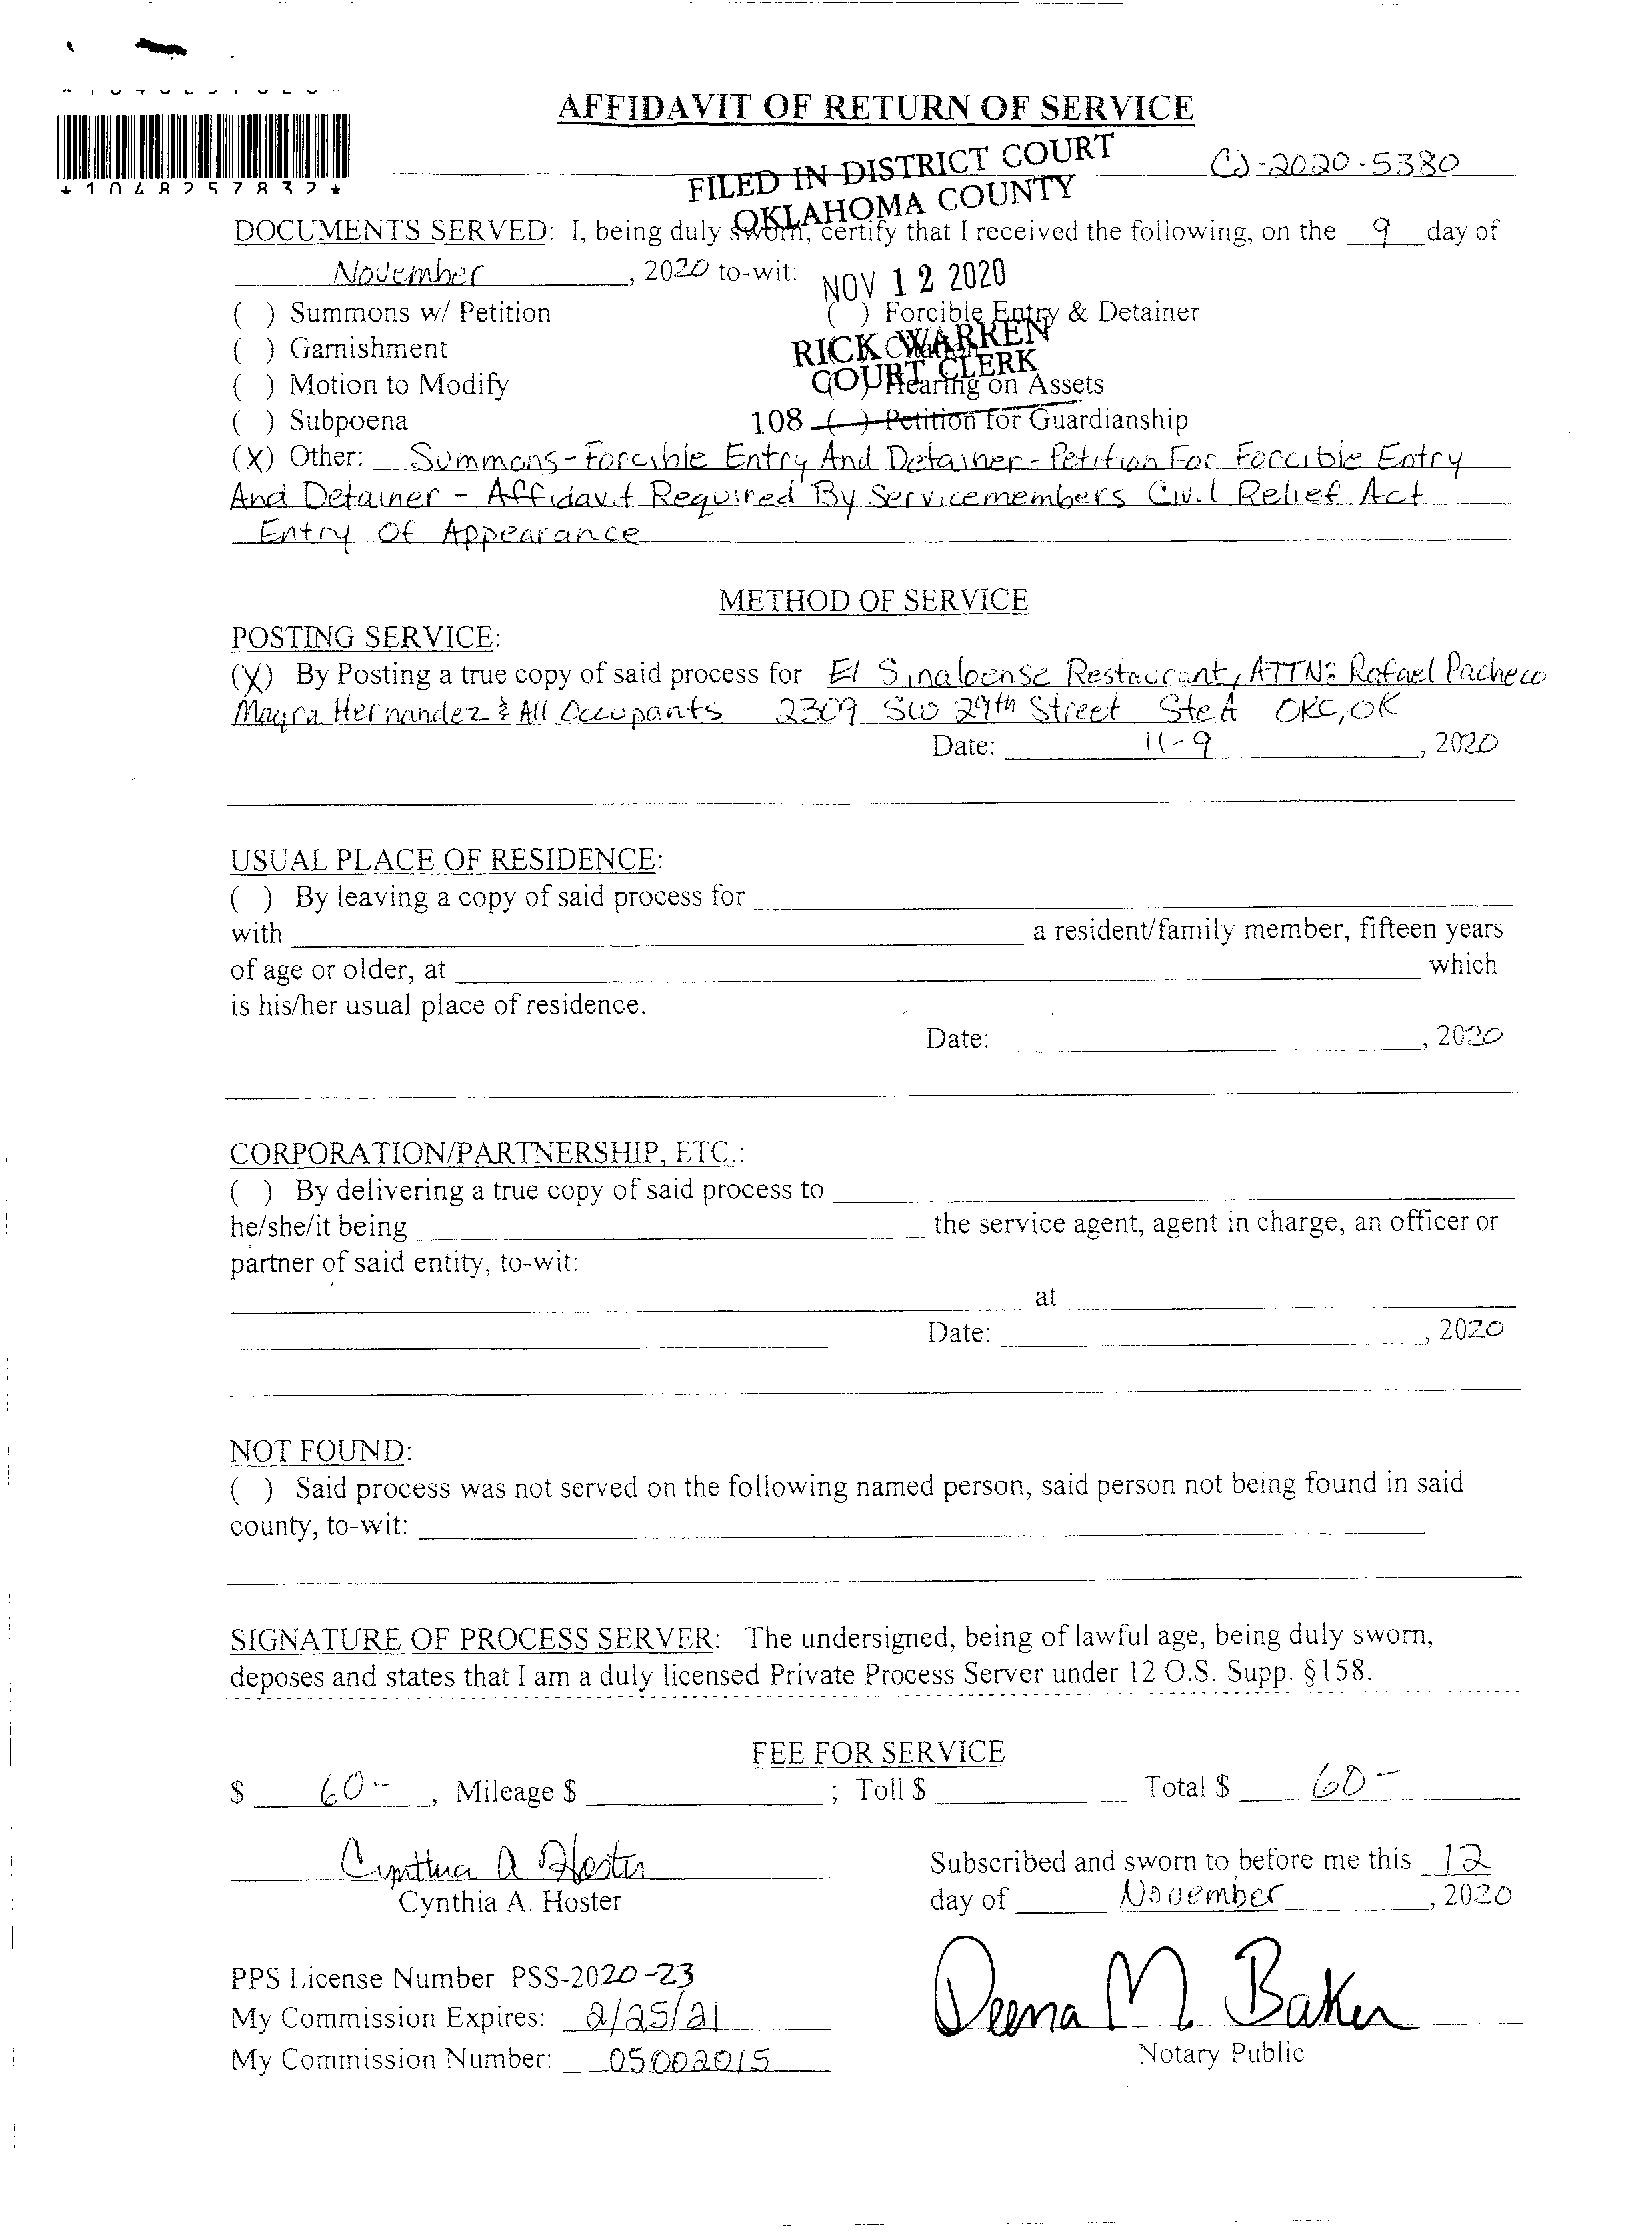 AFFIDAVIT OF RETURN OF SERVICE
*1048257832*
FILED IN DISTRICT COURT
OKLAHOMA COUNTY
CJ-2020-5380
DOCUMENTS SERVED: I, being duly sworn, certify that I received the following, on the 9 day of
November, 2020 to-wit:
NOV 12 2020
( ) Summons w/ Petition ( ) Forcible Entry & Detainer
( ) Garnishment
RICK WARREN
COURT CLERK
( ) Motion to Modify ( ) Hearing on Assets
( ) Subpoena 108 ( ) Petition for Guardianship
(X) Other: Summons-Forcible Entry And Detainer-Petition For Forcible Entry
And Detainer - Affidavit Required By Servicemembers Civil Relief Act
Entry Of Appearance
METHOD OF SERVICE
POSTING SERVICE:
(X) By Posting a true copy of said process for El Sinaloense Restaurant, ATTN: Rafael Pacheco
Mayra Hernandez & All Occupants 2309 SW 29th Street Ste A OKC, OK
Date: 11-9, 2020
USUAL PLACE OF RESIDENCE:
( ) By leaving a copy of said process for
with a resident/family member, fifteen years
of age or older, at which
is his/her usual place of residence.
Date: , 2020
CORPORATION/PARTNERSHIP, ETC.:
( ) By delivering a true copy of said process to
he/she/it being the service agent, agent in charge, an officer or
partner of said entity, to-wit:
at
Date: , 2020
NOT FOUND:
( ) Said process was not served on the following named person, said person not being found in said
county, to-wit:
SIGNATURE OF PROCESS SERVER: The undersigned, being of lawful age, being duly sworn,
deposes and states that I am a duly licensed Private Process Server under 12 O.S. Supp. §158.
FEE FOR SERVICE
$ 60-, Mileage $ ; Toll $ Total $ 60-
Cynthia A Hoster
Subscribed and sworn to before me this 12
Cynthia A. Hoster
day of November, 2020
PPS License Number PSS-2020-23
Deena M. Baker
My Commission Expires: 2/25/21
My Commission Number: 05002015
Notary Public